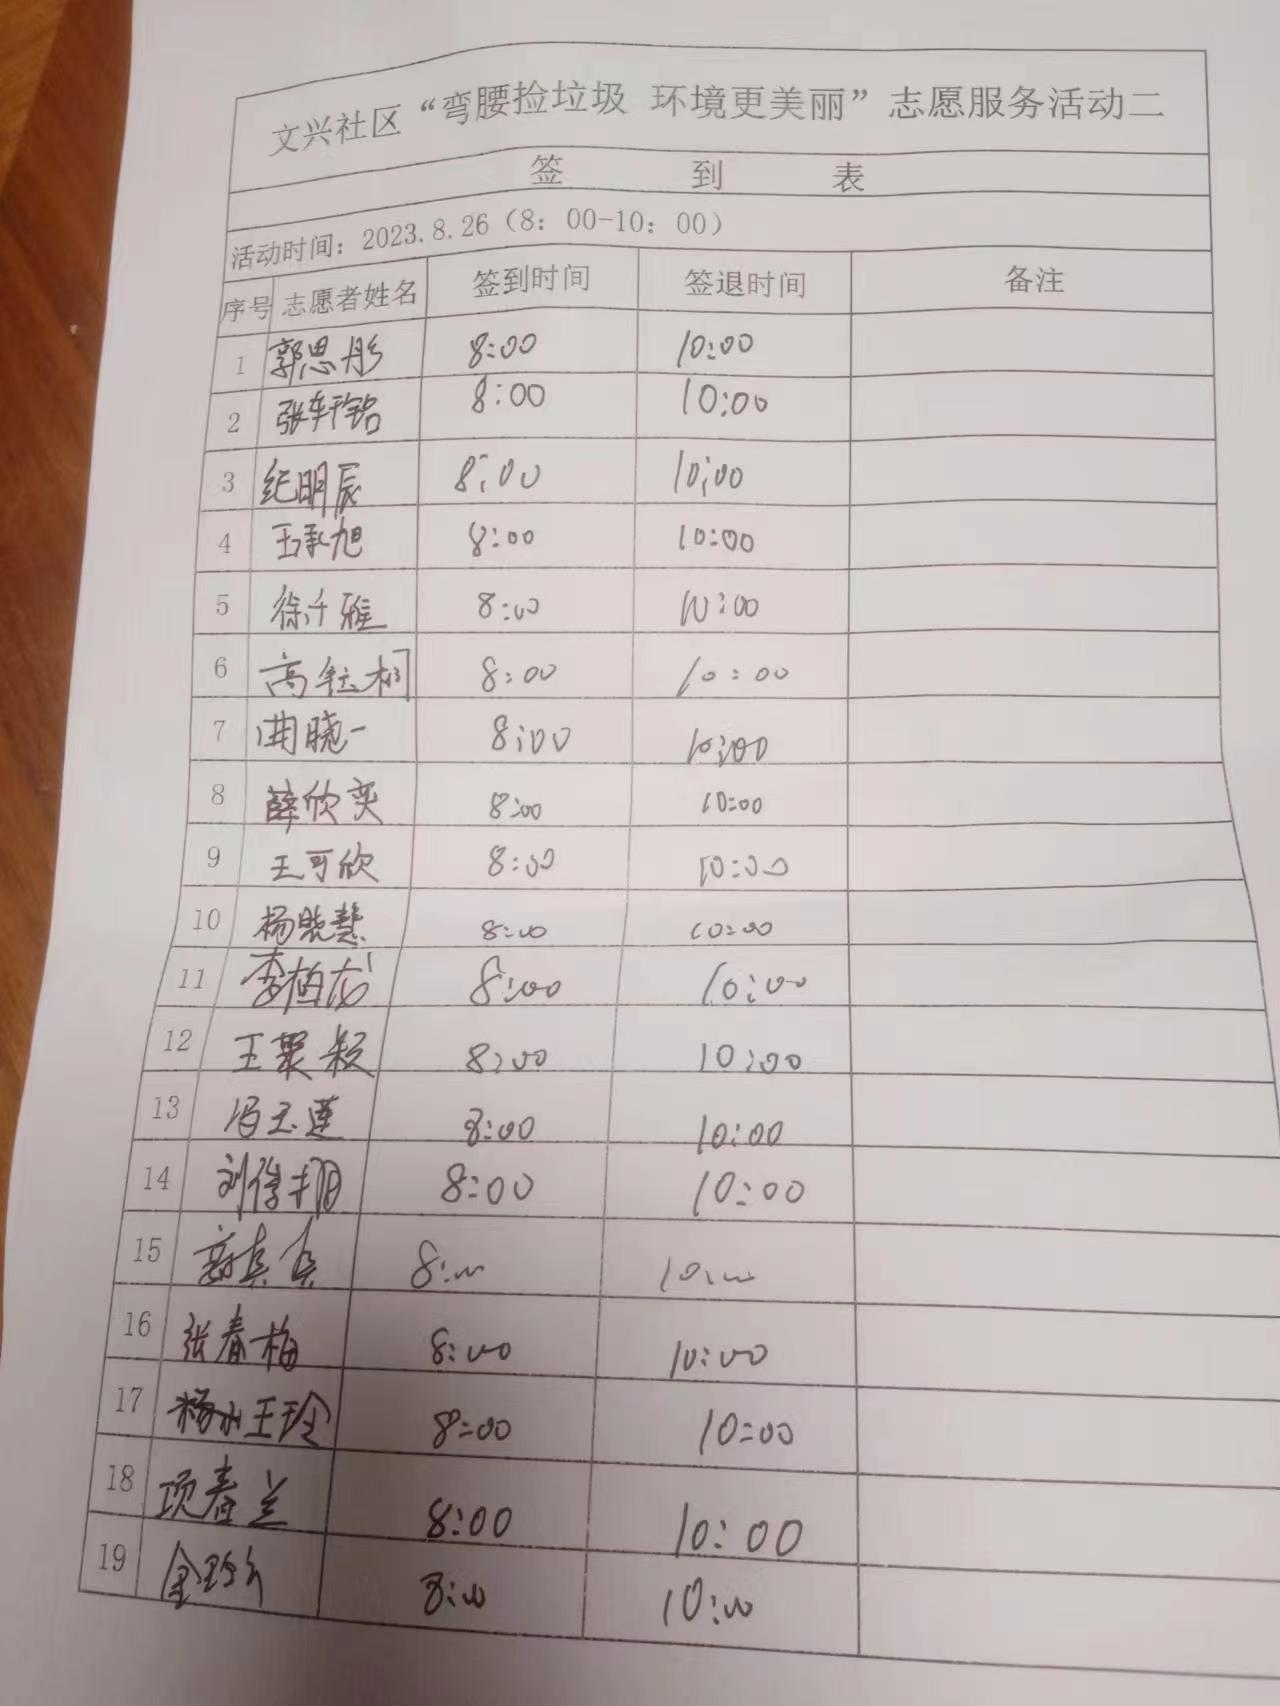 文兴社区“弯腰捡垃圾 环境更美丽”志愿服务活动二
签 到 表
活动时间：2023.8.26（8：00-10：00）
序号 志愿者姓名 签到时间 签退时间 备注
1 郭思彤 8:00 10:00
2 张轩铭 8:00 10:00
3 纪明辰 8:00 10:00
4 王承旭 8:00 10:00
5 徐千雅 8:00 10:00
6 高钰桐 8:00 10:00
7 曲晓一 8:00 10:00
8 薛欣奕 8:00 10:00
9 王可欣 8:00 10:00
10 杨晓慧 8:00 10:00
11 李柏龙 8:00 10:00
12 王 8:00 10:00
13 冯玉莲 8:00 10:00
14 刘 8:00 10:00
15 8:00 10:00
16 张春梅 8:00 10:00
17 王玲 8:00 10:00
18 项春兰 8:00 10:00
19 金 8:00 10:00